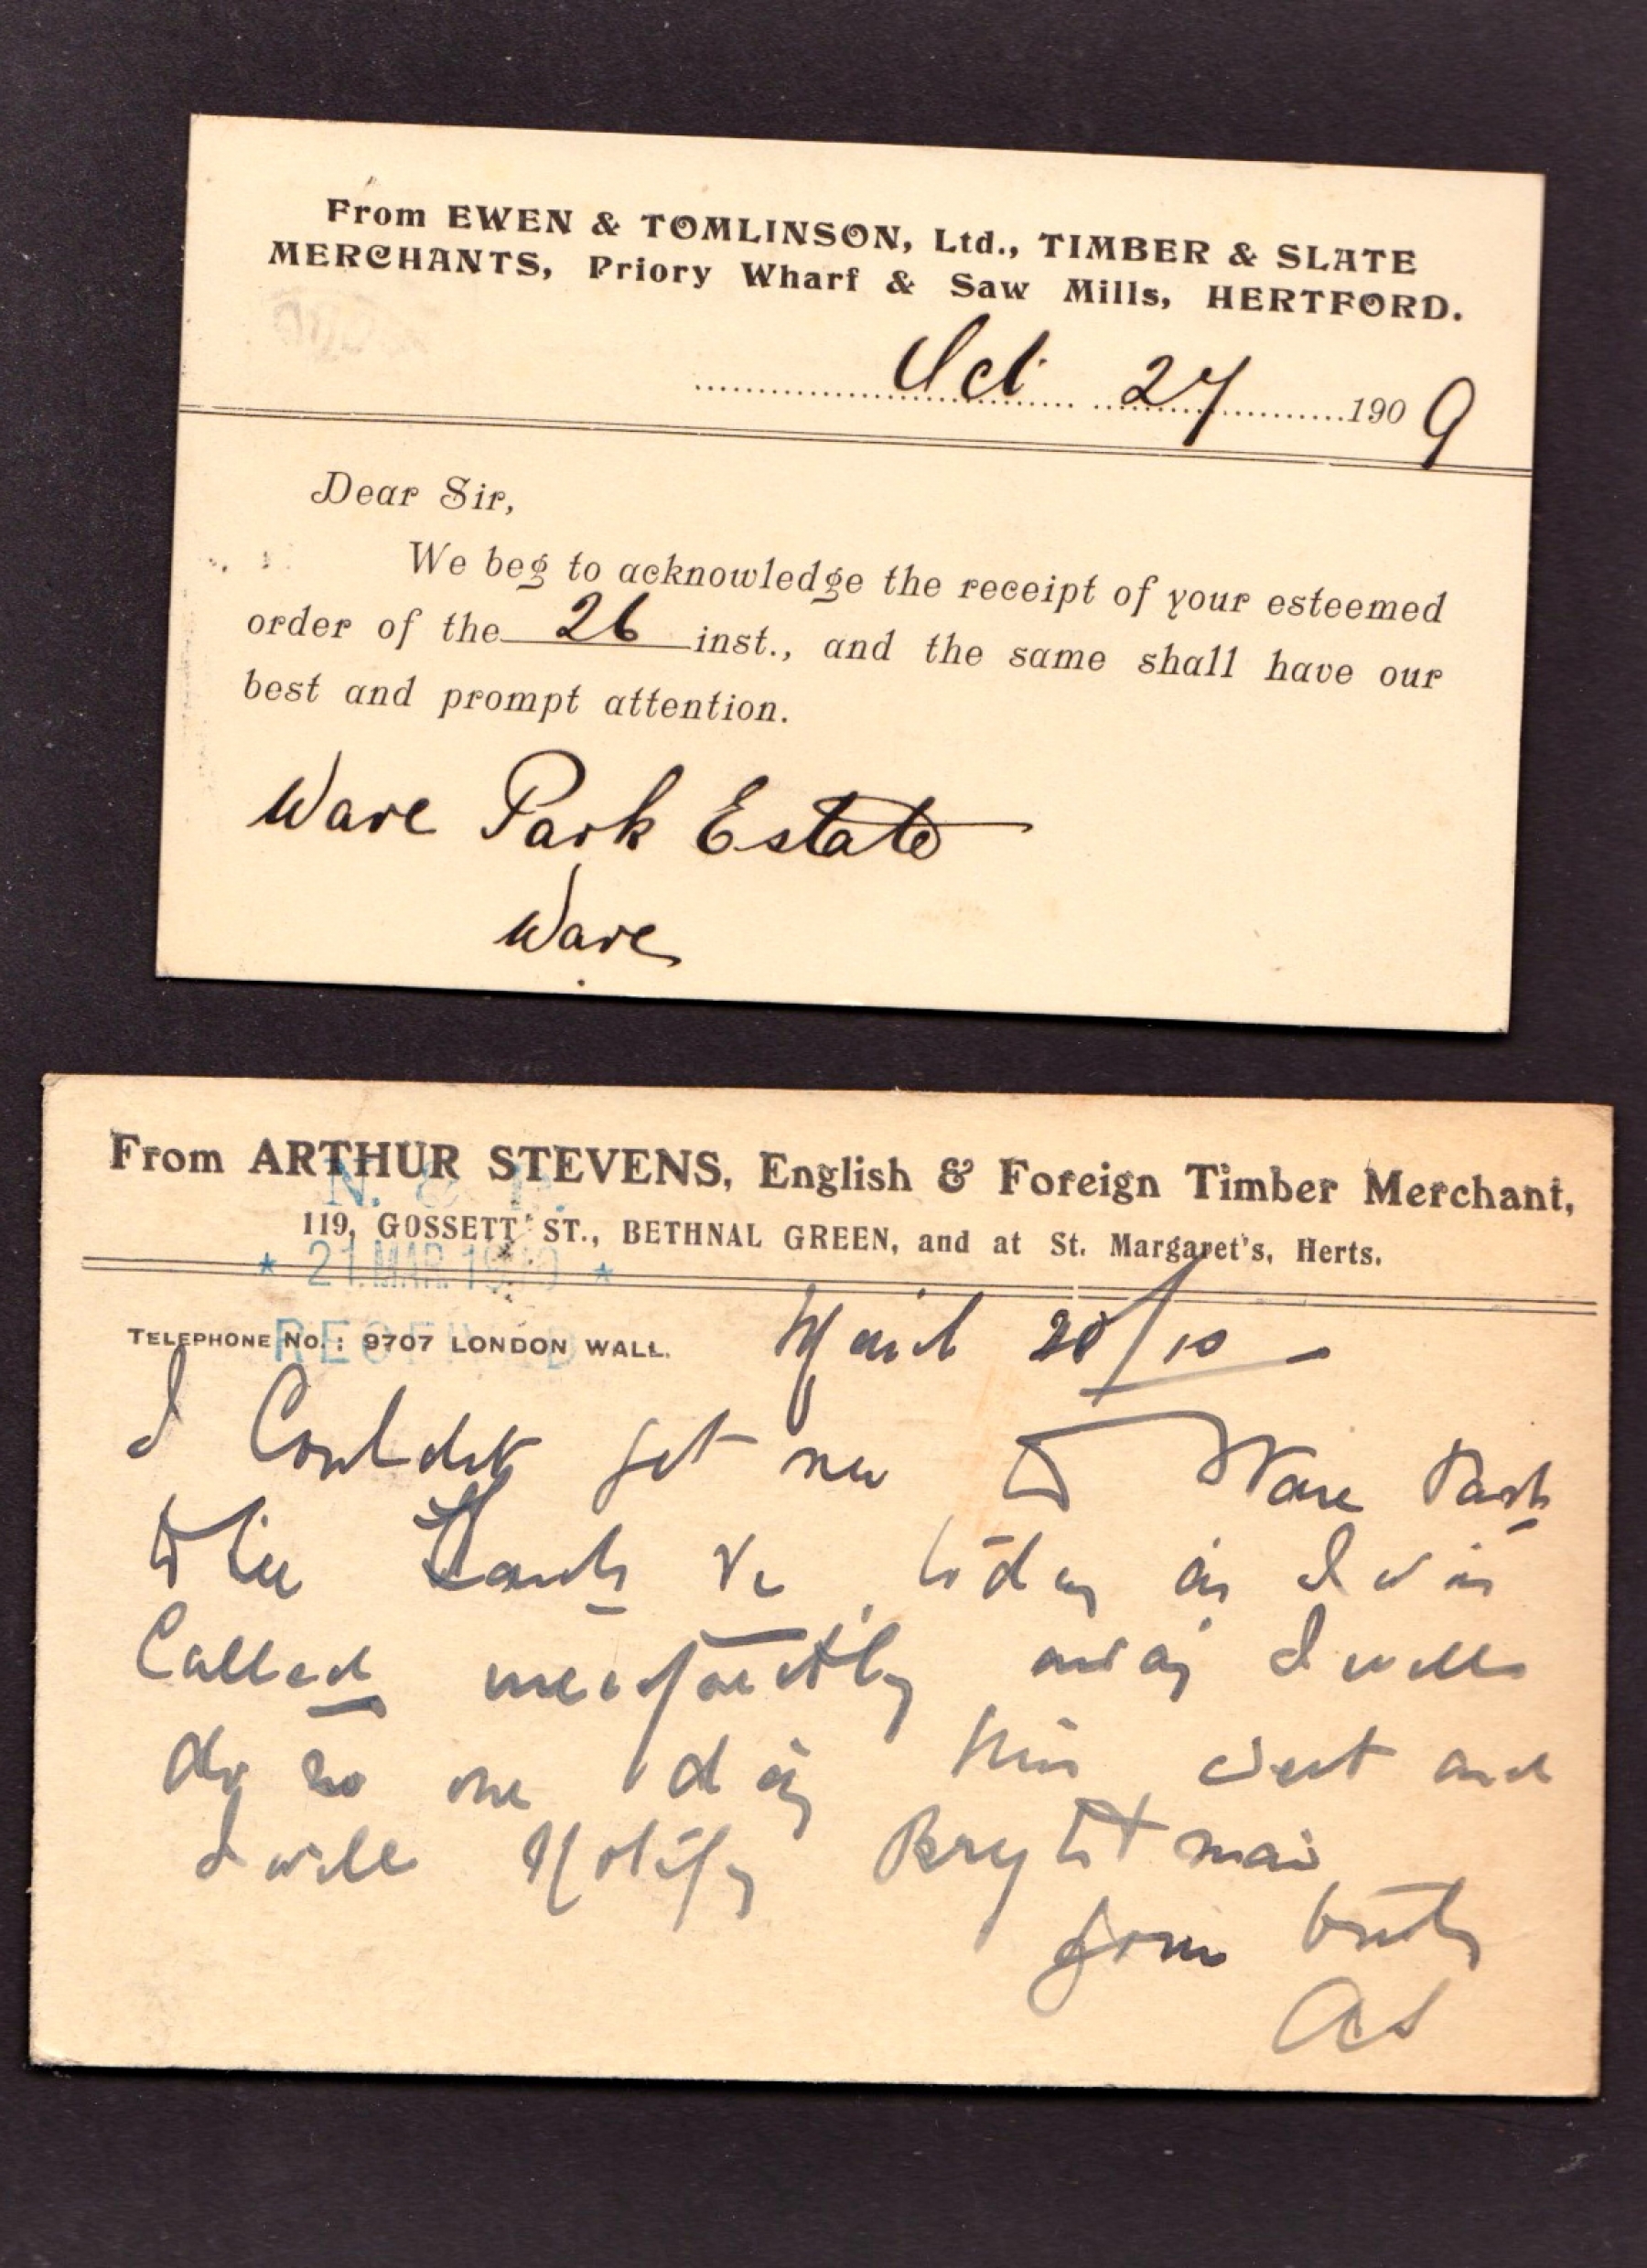 From EWEN & TOMLINSON, Ltd., TIMBER & SLATE
MERCHANTS, Priory Wharf & Saw Mills, HERTFORD.
Oct 27 1909
Dear Sir,
We beg to acknowledge the receipt of your esteemed
order of the 26 inst., and the same shall have our
best and prompt attention.
Ware Park Estate
Ware
From ARTHUR STEVENS, English & Foreign Timber Merchant,
119, GOSSETT ST., BETHNAL GREEN, and at St. Margaret's, Herts.
21.MAR.1910
TELEPHONE No.: 9707 LONDON WALL.
RECEIVED
March 20/10
I Couldnt get to Ware Park
today as I was
Called unexpectedly away I will
do so one day this week and
I will Notify
Yours truly
AS